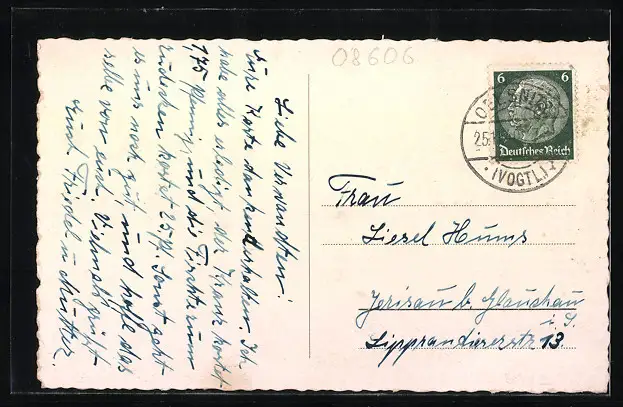 08606
6 6
Deutsches Reich
25.1
(VOGTL.)
Liebe Verwandten!
Eure Karte dankend erhalten. Ich
habe alles erledigt, der Kranz kostet
1,75 Pfennig und die Fichte zum
zudecken kostet 25 Pf. Sonst geht
es uns noch gut, und hoffe das
selbe von euch. Vielmals grüßt
und Friedel u. Mutter.
Frau
Liesel Hums
Jerisau b. Glauchau
i. S.
Lipprandiserstr 13.